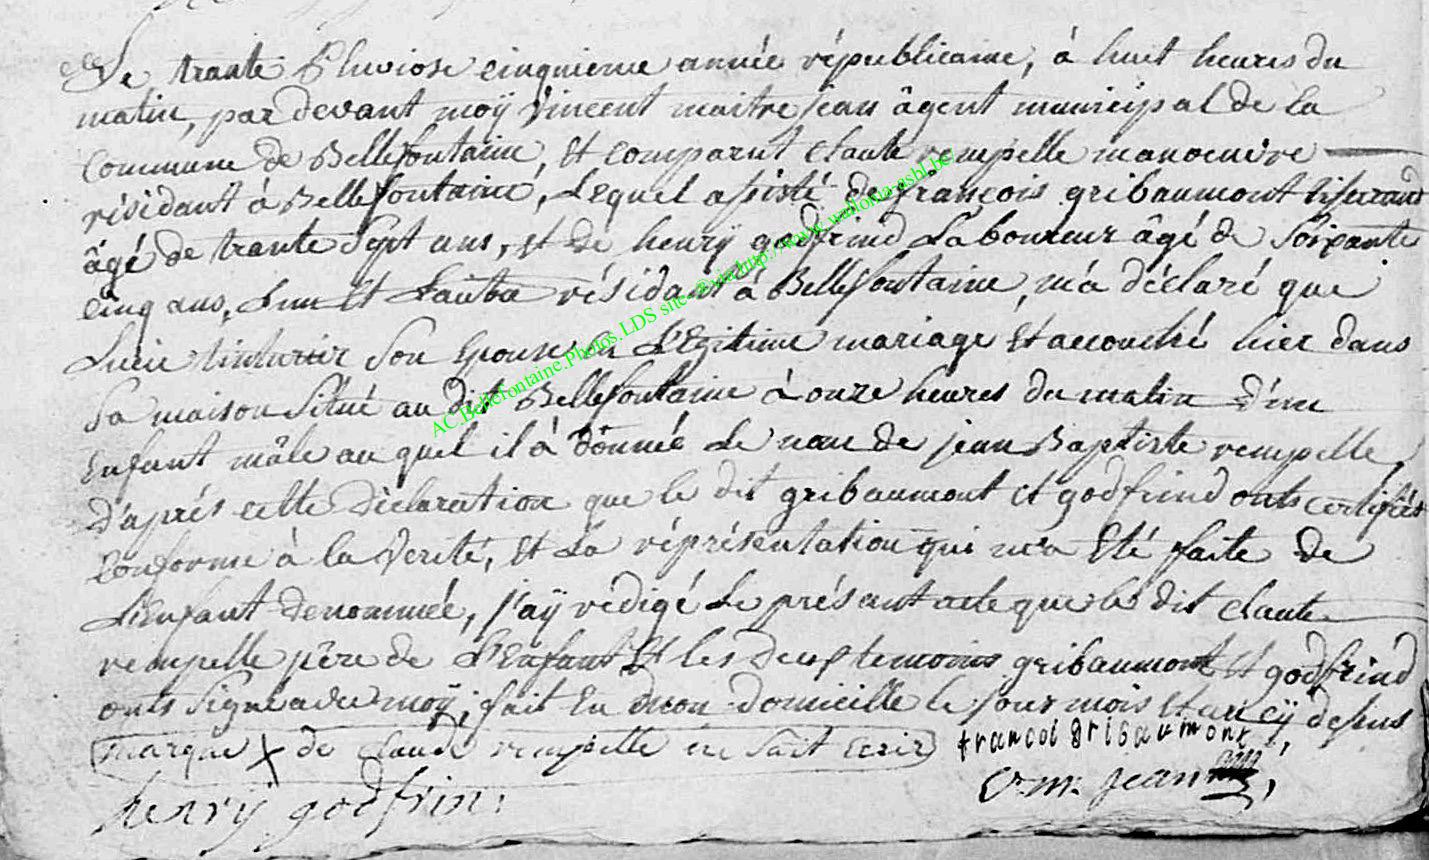 Le trante Pluviose cinquieme année républicaine, à huit heures du
matin, par devant moÿ Vincent maitrejean âgent municipal de la
Commune de Bellefontaine, Et comparut Claute rempelle manoeuvre
résidant à Bellefontaine, Lequel apisté de françois gribaumont tisserand
âgé de trante Sept ans, et de henrÿ godfrind Laboureur âgé de Soixante
Cinq ans, L'un Et L'autre résidant à Bellefontaine, m'a déclaré que
Lucie Son Epouse en L'Egitime mariage Et accouché hier dans
Sa maison Situé au dit Bellefontaine à onze heures du matin d'un
Enfant mâle au quel il à donnée Le nom de jean Baptiste rempelle,
D'aprés cette Déclaration que le dit gribaumont et godfrind onts certifiés
Conforme à la Verité, Et La réprésentation qui m'a Eté faite de
L'Enfant denommée, j'aÿ rédigé Le présant acte que le dit Claute
rempelle pére de L'Enfant Et les deux temoins gribaumont Et godfrind
onts Signé avec moÿ; fait En mon domicille le jour mois et an cÿ desus
marque X de Claude rempelle ne Sait Ecrir
francoi gribaumont
henrÿ godfrin;
V. m. jean
AC Bellefontaine.Photos.LDS site @via http://www.wallonia-asbl.be